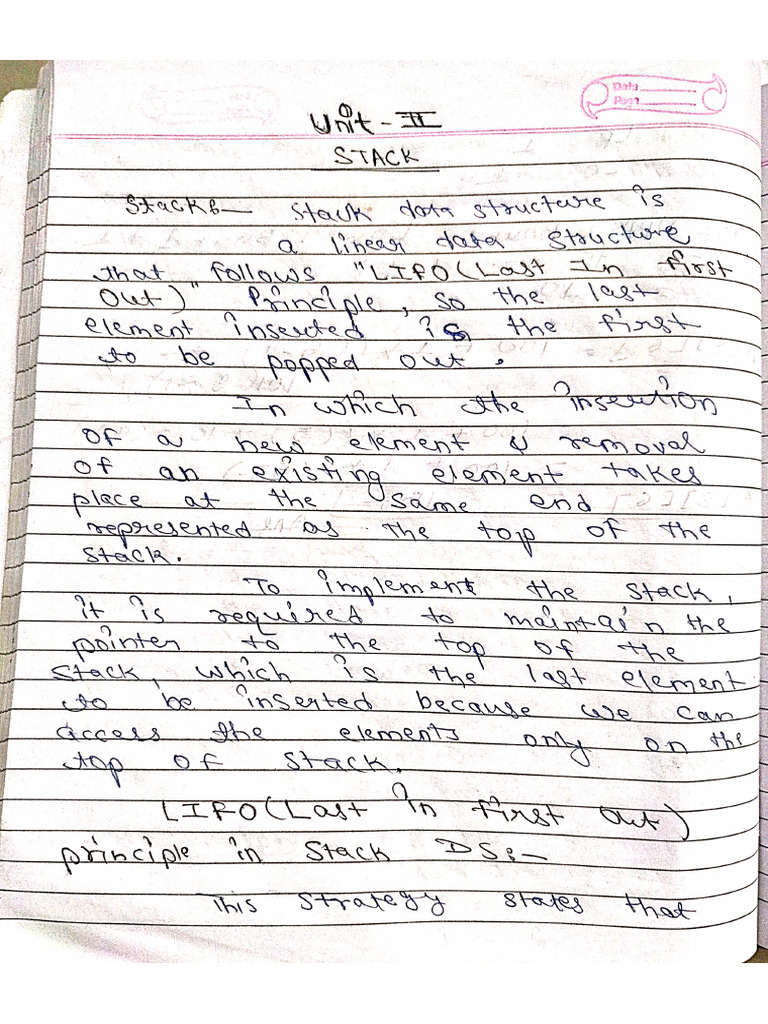 Date
Page
Unit - II
STACK
Stack:- Stack data structure is
a linear data structure
that follows "LIFO (Last In first
Out)" Principle, so the last
element inserted is the first
to be popped out.
In which the insertion
of a new element & removal
of an existing element takes
place at the same end
represented as the top of the
stack.
To implement the stack,
it is required to maintain the
pointer to the top of the
stack, which is the last element
to be inserted because we can
access the elements only on the
top of stack.
LIFO (Last in first out)
principle in Stack DS:-
This strategy states that